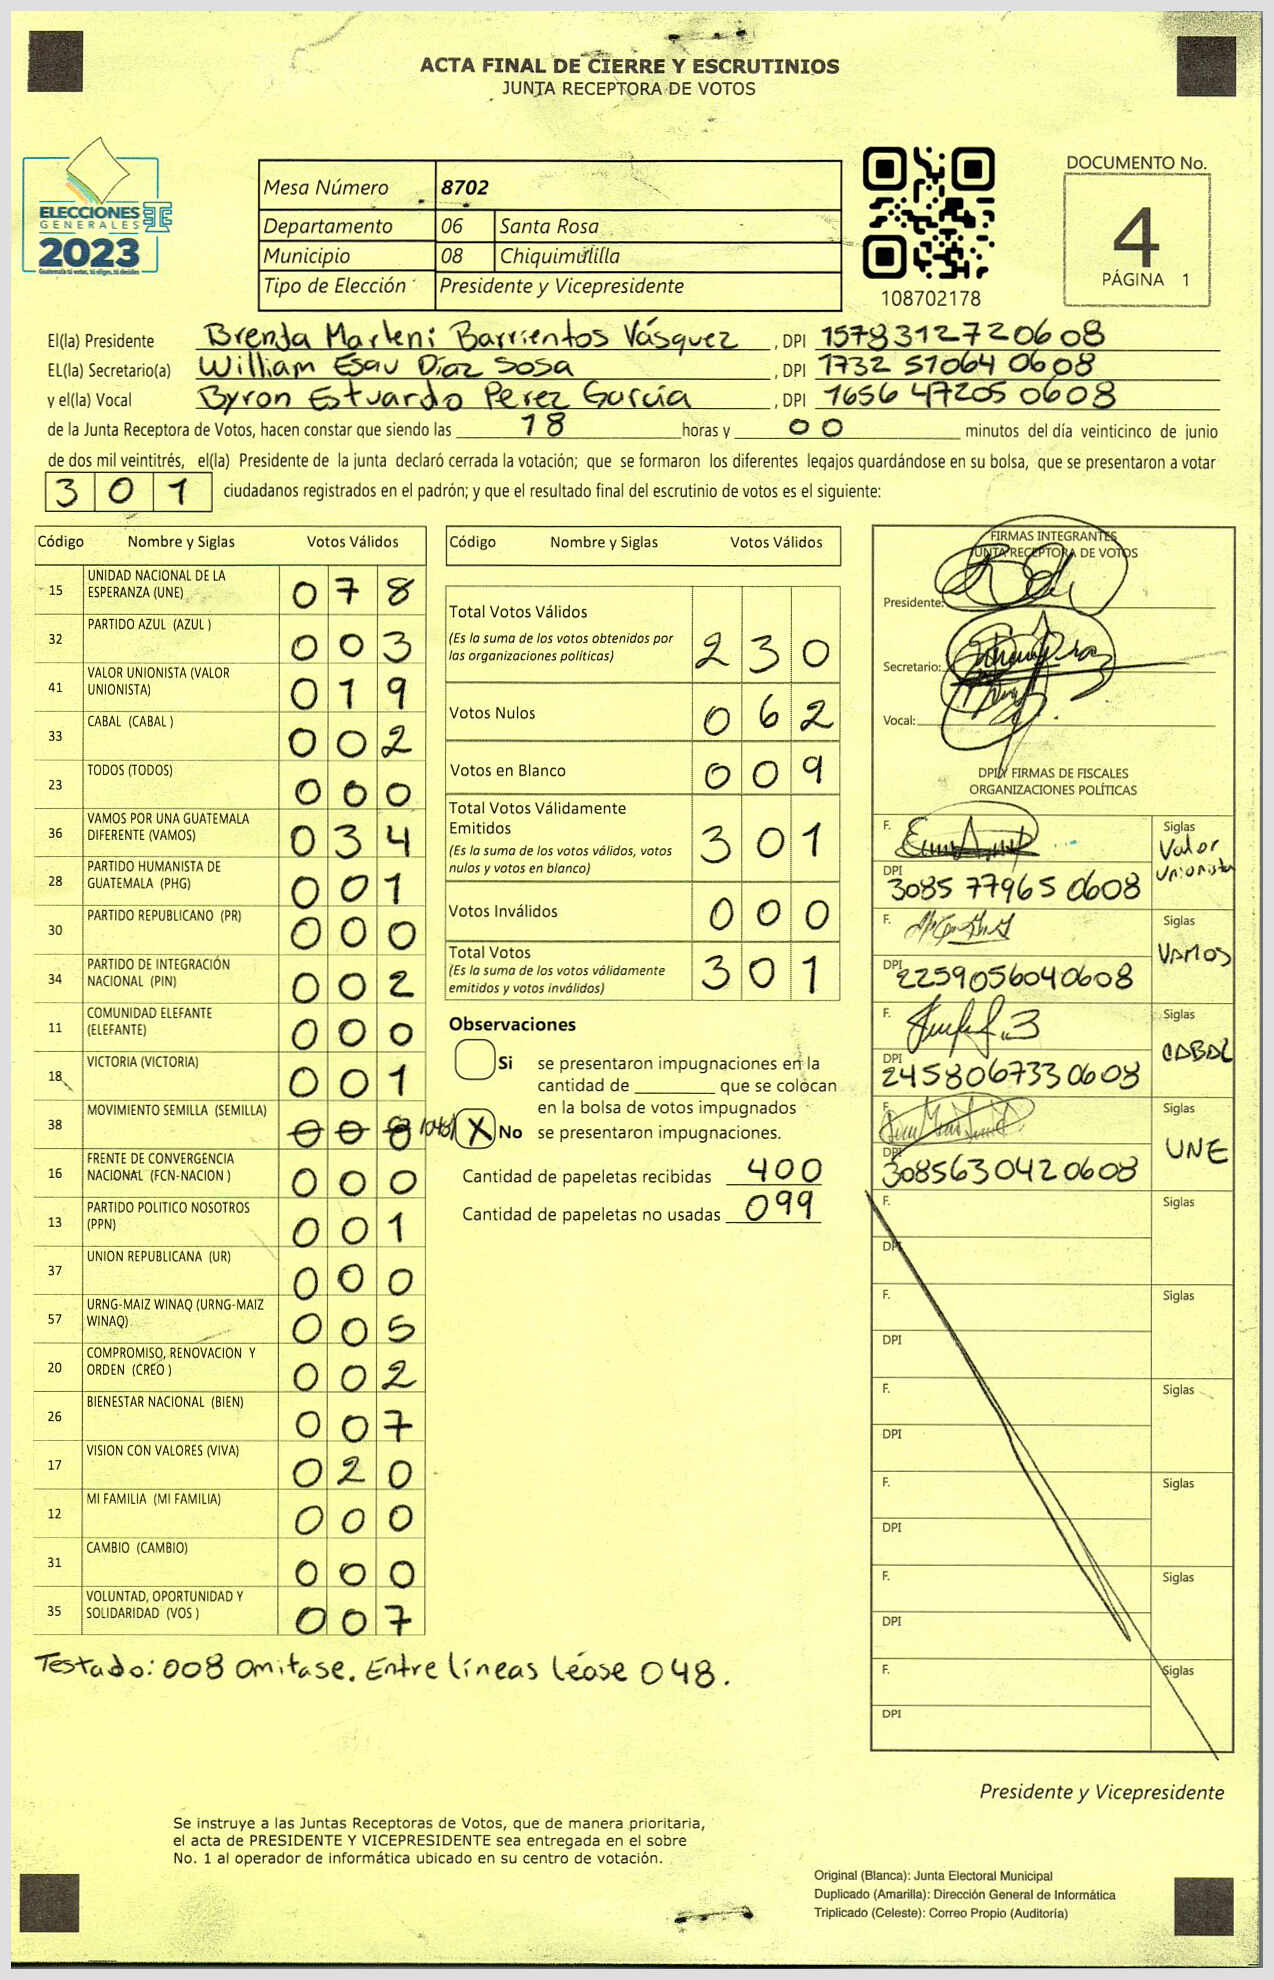 ACTA FINAL DE CIERRE Y ESCRUTINIOS
JUNTA RECEPTORA DE VOTOS
ELECCIONES
GENERALES
2023
Guatemala tú votas, tú eliges, tú decides
Mesa Número 8702
Departamento 06 Santa Rosa
Municipio 08 Chiquimulilla
Tipo de Elección Presidente y Vicepresidente
108702178
DOCUMENTO No.
4
PÁGINA 1
El(la) Presidente Brenda Marleni Barrientos Vásquez, DPI 1578312720608
EL(la) Secretario(a) William Esau Díaz Sosa, DPI 1732 51064 0608
y el(la) Vocal Byron Estuardo Perez García, DPI 1656 47205 0608
de la Junta Receptora de Votos, hacen constar que siendo las 18 horas y 00 minutos del día veinticinco de junio
de dos mil veintitrés, el(la) Presidente de la junta declaró cerrada la votación; que se formaron los diferentes legajos guardándose en su bolsa, que se presentaron a votar
301 ciudadanos registrados en el padrón; y que el resultado final del escrutinio de votos es el siguiente:
Código Nombre y Siglas Votos Válidos
15 UNIDAD NACIONAL DE LA ESPERANZA (UNE) 078
32 PARTIDO AZUL (AZUL ) 003
41 VALOR UNIONISTA (VALOR UNIONISTA) 019
33 CABAL (CABAL ) 002
23 TODOS (TODOS) 000
36 VAMOS POR UNA GUATEMALA DIFERENTE (VAMOS) 034
28 PARTIDO HUMANISTA DE GUATEMALA (PHG) 001
30 PARTIDO REPUBLICANO (PR) 000
34 PARTIDO DE INTEGRACIÓN NACIONAL (PIN) 002
11 COMUNIDAD ELEFANTE (ELEFANTE) 000
18 VICTORIA (VICTORIA) 001
38 MOVIMIENTO SEMILLA (SEMILLA) 008 /048/
16 FRENTE DE CONVERGENCIA NACIONAL (FCN-NACION ) 000
13 PARTIDO POLITICO NOSOTROS (PPN) 001
37 UNION REPUBLICANA (UR) 000
57 URNG-MAIZ WINAQ (URNG-MAIZ WINAQ) 005
20 COMPROMISO, RENOVACION Y ORDEN (CREO ) 002
26 BIENESTAR NACIONAL (BIEN) 007
17 VISION CON VALORES (VIVA) 020
12 MI FAMILIA (MI FAMILIA) 000
31 CAMBIO (CAMBIO) 000
35 VOLUNTAD, OPORTUNIDAD Y SOLIDARIDAD (VOS ) 007
Testado: 008 Omitase. Entre líneas léase 048.
Código Nombre y Siglas Votos Válidos
Total Votos Válidos 230
(Es la suma de los votos obtenidos por
las organizaciones políticas)
Votos Nulos 062
Votos en Blanco 009
Total Votos Válidamente
Emitidos 301
(Es la suma de los votos válidos, votos
nulos y votos en blanco)
Votos Inválidos 000
Total Votos 301
(Es la suma de los votos válidamente
emitidos y votos inválidos)
Observaciones
Si se presentaron impugnaciones en la
cantidad de ________ que se colocan
en la bolsa de votos impugnados
X No se presentaron impugnaciones.
Cantidad de papeletas recibidas 400
Cantidad de papeletas no usadas 099
FIRMAS INTEGRANTES
JUNTA RECEPTORA DE VOTOS
Presidente:
Secretario:
Vocal:
DPI Y FIRMAS DE FISCALES
ORGANIZACIONES POLÍTICAS
F. Siglas Valor Unionista
DPI 3085 77965 0608
F. Siglas VAMOS
DPI 2259056040608
F. Siglas CABAL
DPI 2458067330608
F. Siglas UNE
DPI 3085630420608
F. Siglas
DPI
F. Siglas
DPI
F. Siglas
DPI
F. Siglas
DPI
F. Siglas
DPI
F. Siglas
DPI
Presidente y Vicepresidente
Se instruye a las Juntas Receptoras de Votos, que de manera prioritaria,
el acta de PRESIDENTE Y VICEPRESIDENTE sea entregada en el sobre
No. 1 al operador de informática ubicado en su centro de votación.
Original (Blanca): Junta Electoral Municipal
Duplicado (Amarilla): Dirección General de Informática
Triplicado (Celeste): Correo Propio (Auditoría)